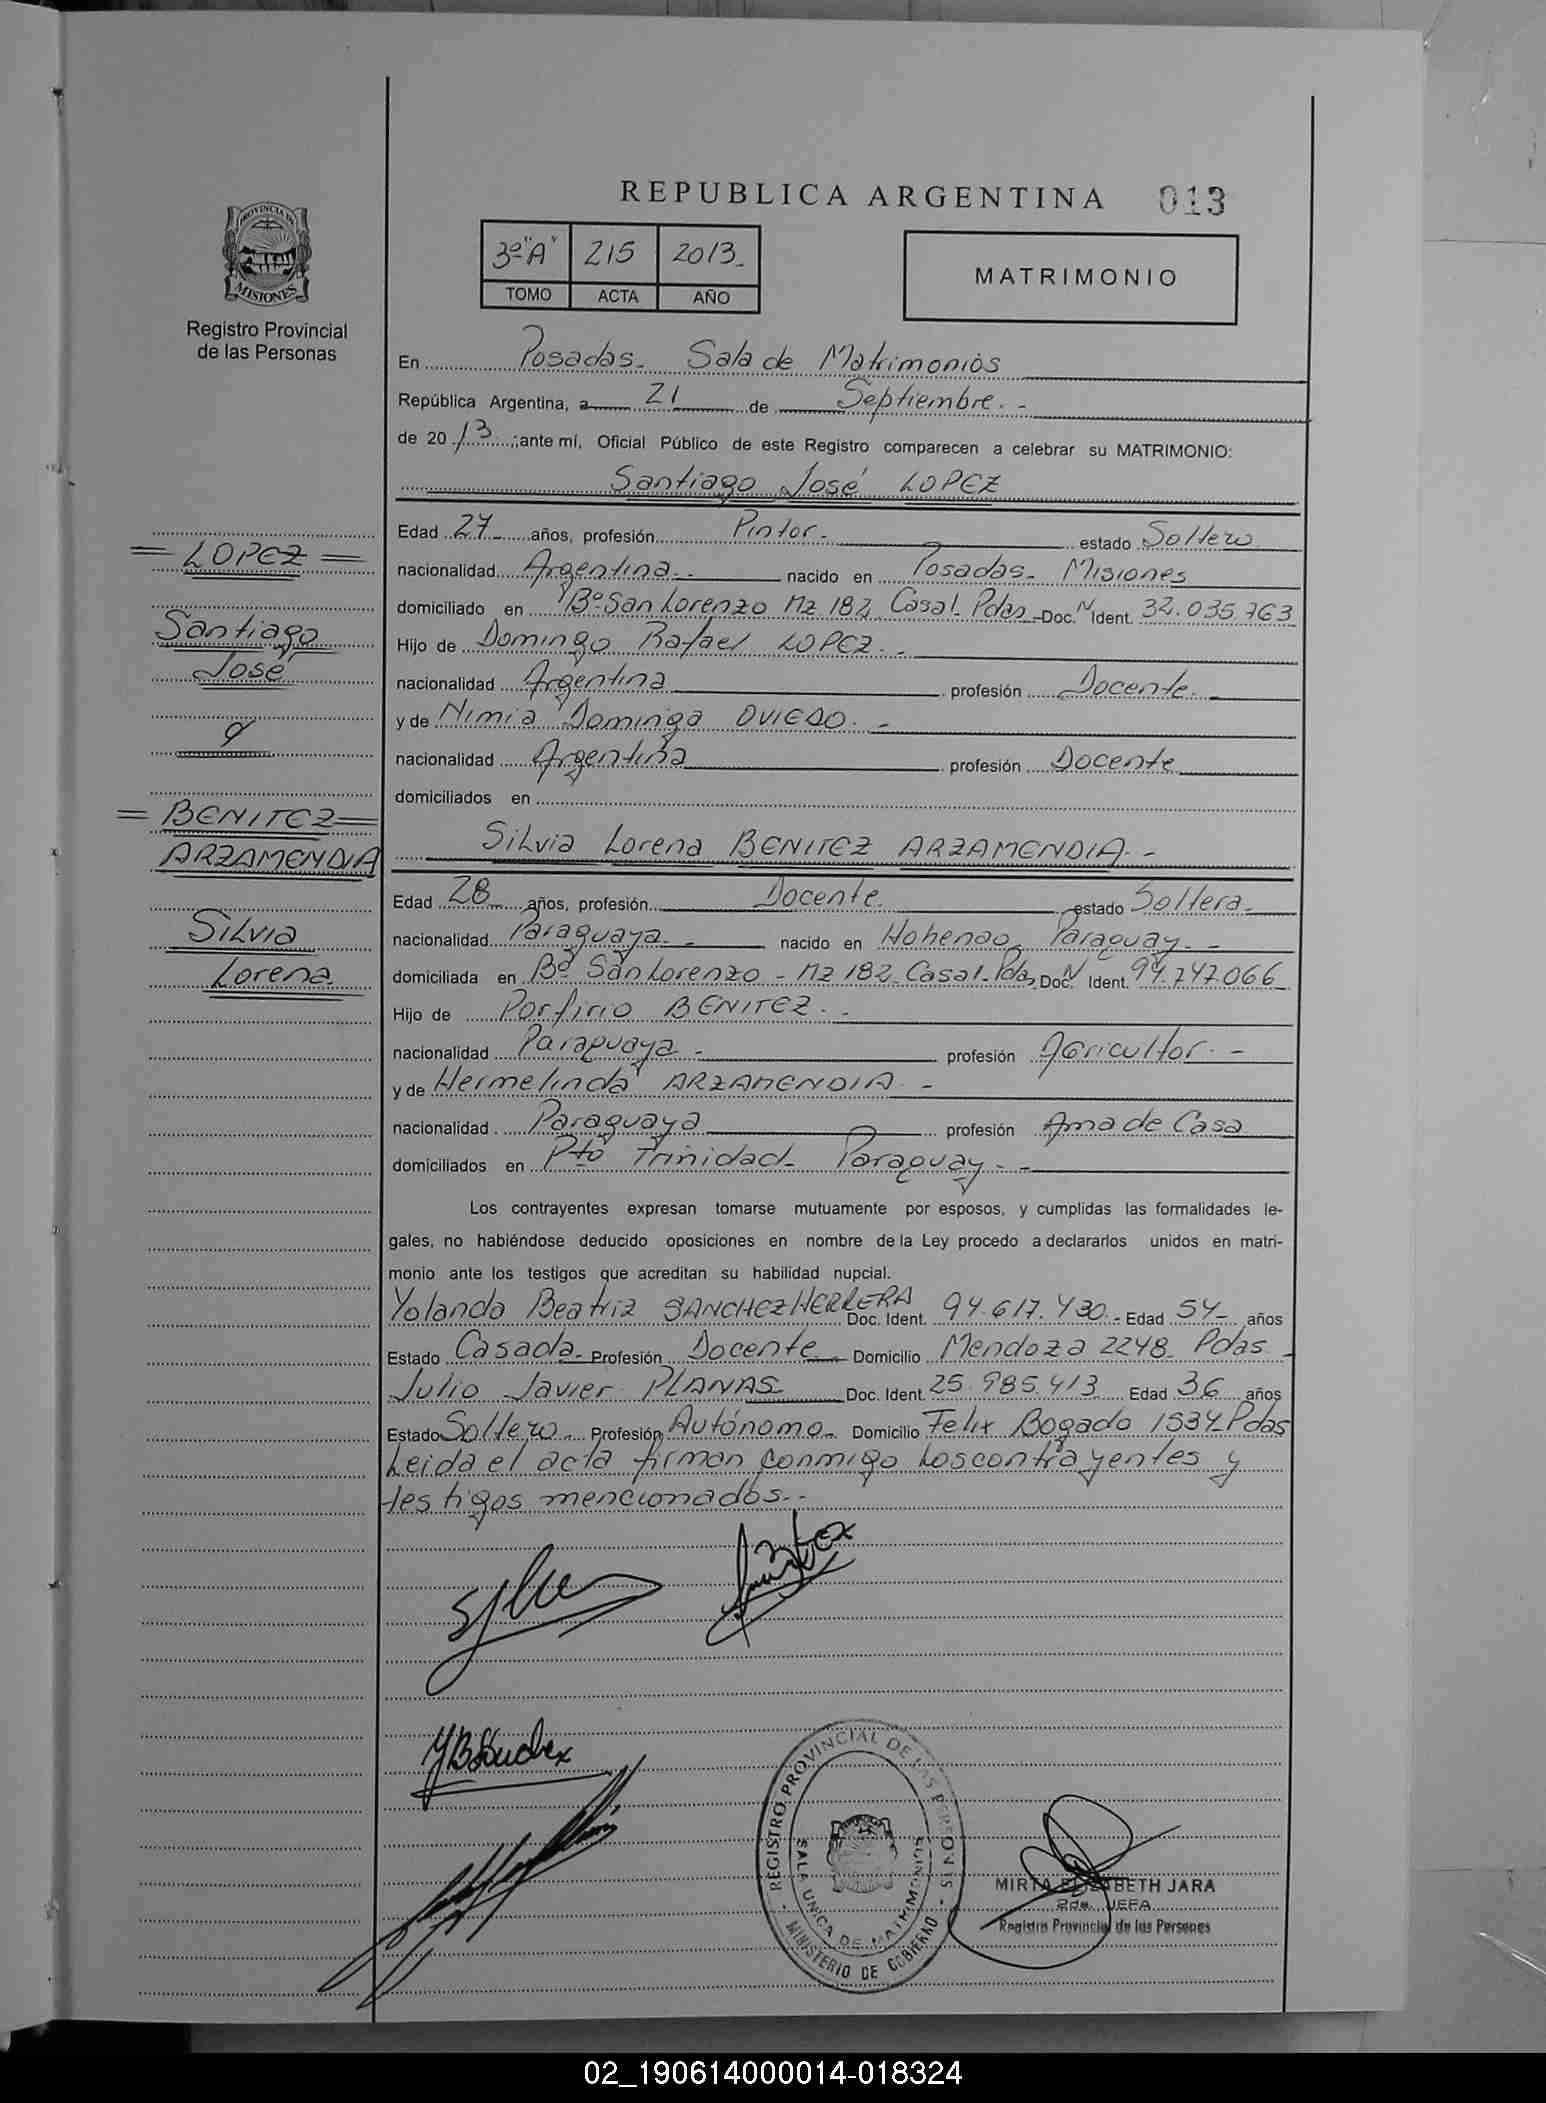 REPUBLICA ARGENTINA 013
PROVINCIA DE
MISIONES
Registro Provincial
de las Personas
3º "A" 215 2013_
TOMO ACTA AÑO
MATRIMONIO
En Posadas_ Sala de Matrimonios
República Argentina, a 21 de Septiembre. -
de 2013; ante mí, Oficial Público de este Registro comparecen a celebrar su MATRIMONIO:
Santiago José LOPEZ
Edad 27 años, profesión Pintor_ estado Soltero
nacionalidad Argentina_ nacido en Posadas_ Misiones
domiciliado en Bº San Lorenzo Mz 182 Casa 1_ Pdas_ Doc. N Ident. 32.035.763
Hijo de Domingo Rafael LOPEZ. -
nacionalidad Argentina profesión Docente. _
y de Nimia Dominga OVIEDO. -
nacionalidad Argentina profesión Docente
domiciliados en
Silvia Lorena BENITEZ ARZAMENDIA. -
Edad 28 años, profesión Docente estado Soltera_
nacionalidad Paraguaya_ - nacido en Hohenao_ Paraguay. -
domiciliada en Bº San Lorenzo - Mz 182 Casa 1_ Pdas Doc. N Ident. 94.747.066
Hijo de Porfirio BENITEZ. -
nacionalidad Paraguaya - profesión Agricultor. -
y de Hermelinda ARZAMENDIA. -
nacionalidad Paraguaya profesión Ama de Casa
domiciliados en Pto Trinidad_ Paraguay. -
Los contrayentes expresan tomarse mutuamente por esposos, y cumplidas las formalidades le-
gales, no habiéndose deducido oposiciones en nombre de la Ley procedo a declararlos unidos en matri-
monio ante los testigos que acreditan su habilidad nupcial.
Yolanda Beatriz SANCHEZ HERRERA Doc. Ident. 94.617.430.- Edad 54_ años
Estado Casada_ Profesión Docente_ Domicilio Mendoza 2248_ Pdas_
Julio Javier PLANAS Doc. Ident. 25.985.413 Edad 36 años
Estado Soltero_ Profesión Autónomo_ Domicilio Felix Bogado 1534_Pdas
Leida el acta firman conmigo Los contrayentes y
testigos mencionados.-
= LOPEZ =
Santiago
José
y
= BENITEZ =
ARZAMENDIA
Silvia
Lorena
YBSanchez
REGISTRO PROVINCIAL DE LAS PERSONAS
SALA UNICA DE MATRIMONIOS
MINISTERIO DE GOBIERNO
MIRTA ELIZABETH JARA
2da. JEFA
Registro Provincial de las Personas
02_190614000014-018324